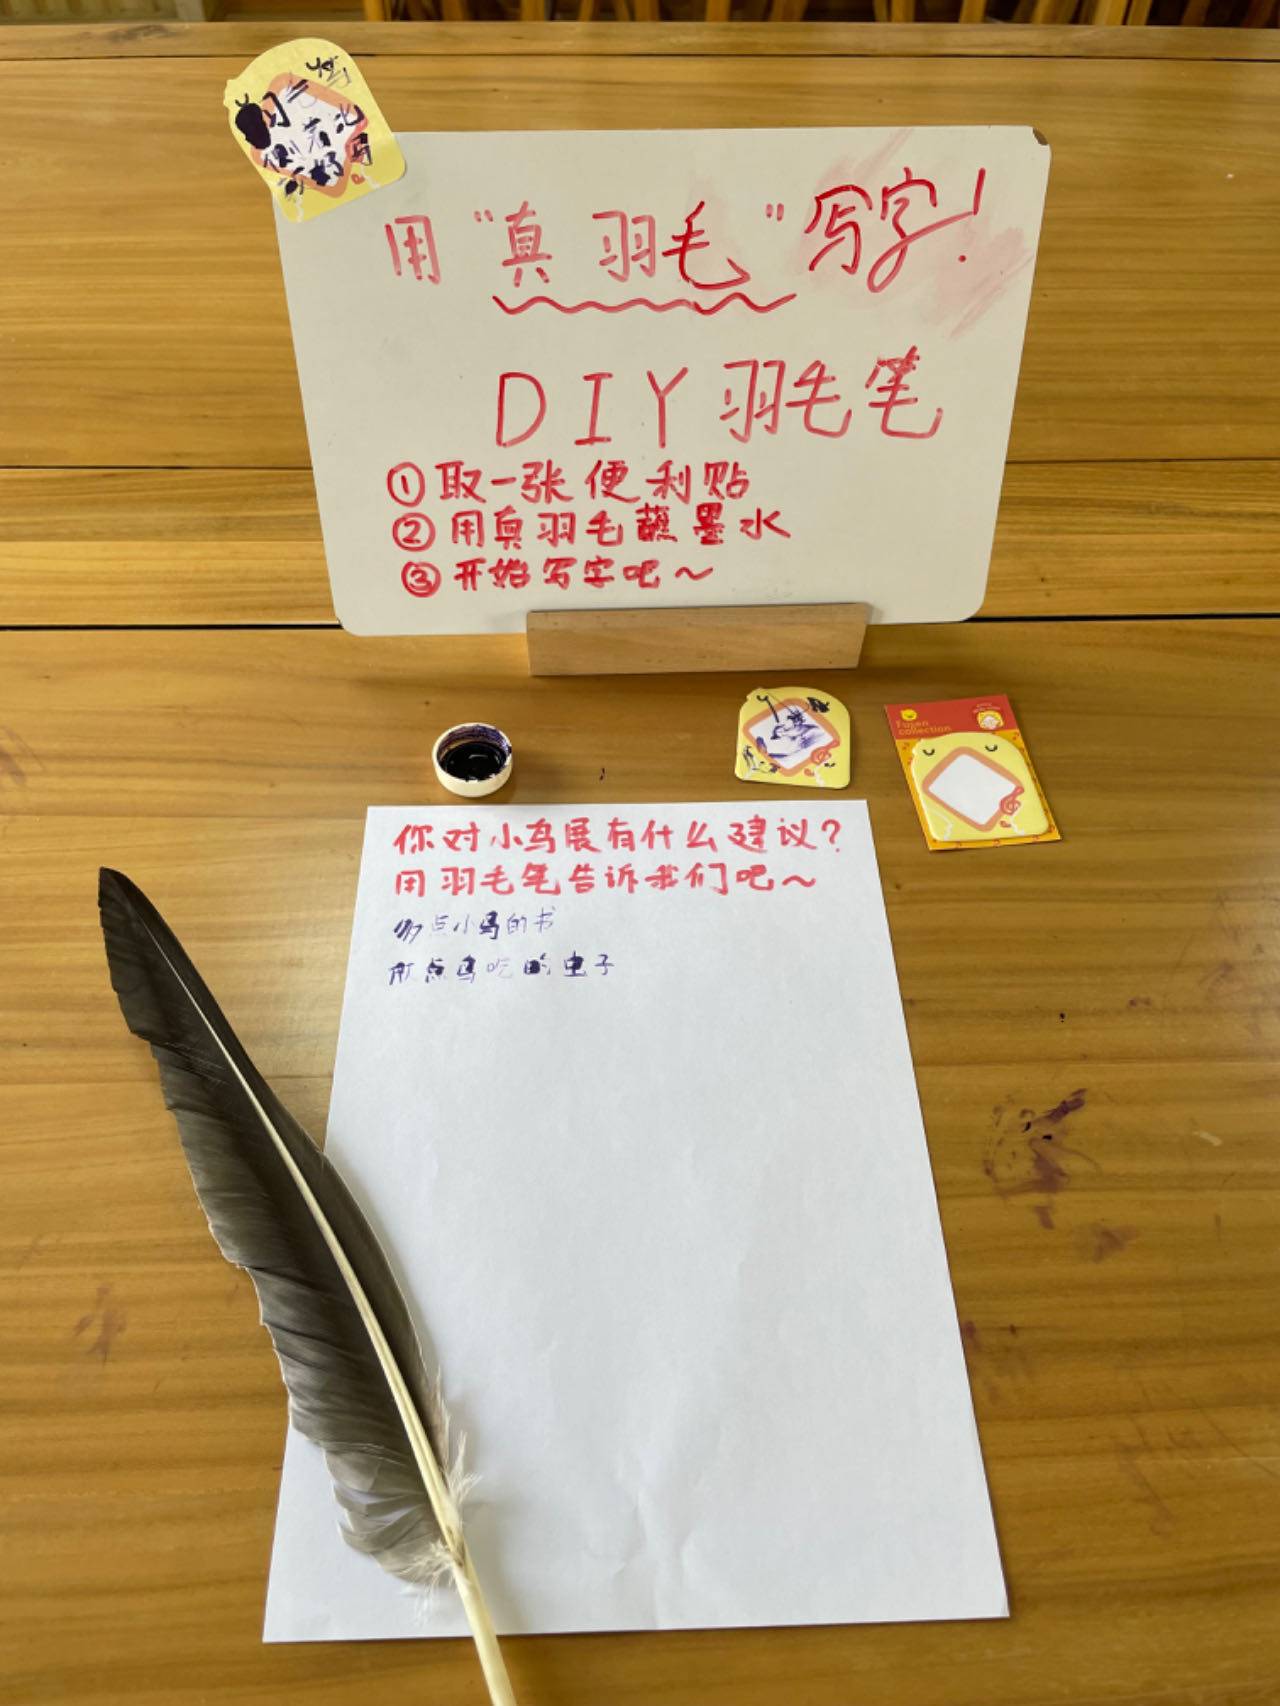 用"真羽毛"写字!
DIY羽毛笔
①取一张便利贴
②用真羽毛蘸墨水
③开始写字吧~
Fusen
collection
你对小鸟展有什么建议?
用羽毛笔告诉我们吧~
多点小鸟的书
放点鸟吃的虫子